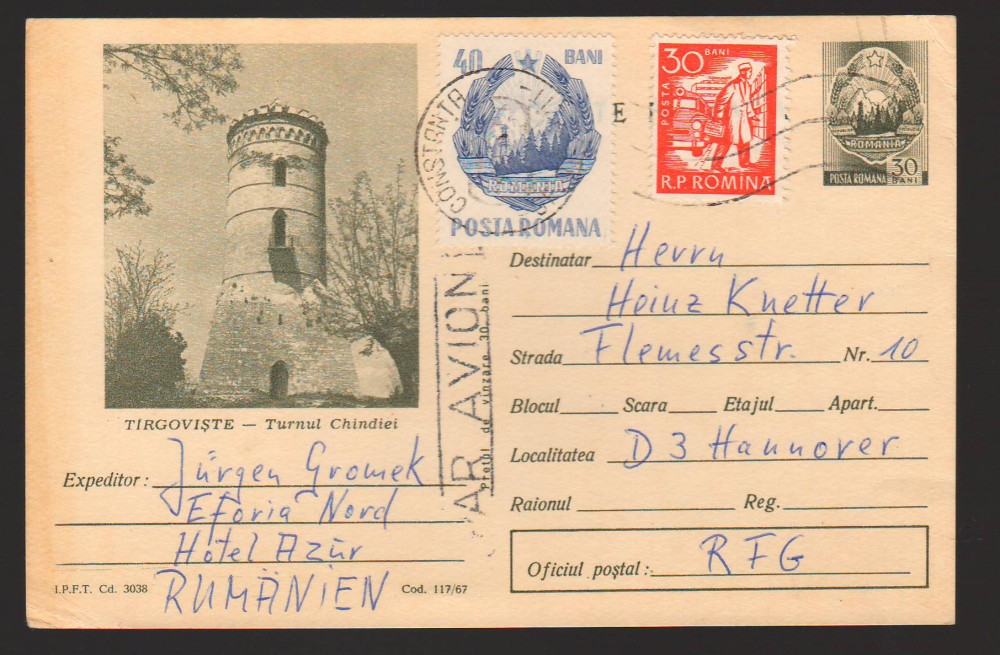 40 BANI
ROMANIA
POSTA ROMANA
CONSTANTA
30 BANI
POSTA
R.P. ROMINA
E
ROMANIA
POSTA ROMANA 30 BANI
TÎRGOVIŞTE — Turnul Chindiei
PAR AVION
Preţul de vînzare 30 bani
Destinatar Herrn
Heinz Knetter
Strada Flemesstr. Nr. 10
Blocul Scara Etajul Apart.
Localitatea D 3 Hannover
Raionul Reg.
Oficiul poştal: RFG
Expeditor: Jürgen Gromek
Eforia Nord
Hotel Azúr
RUMÄNIEN
I.P.F.T. Cd. 3038
Cod. 117/67